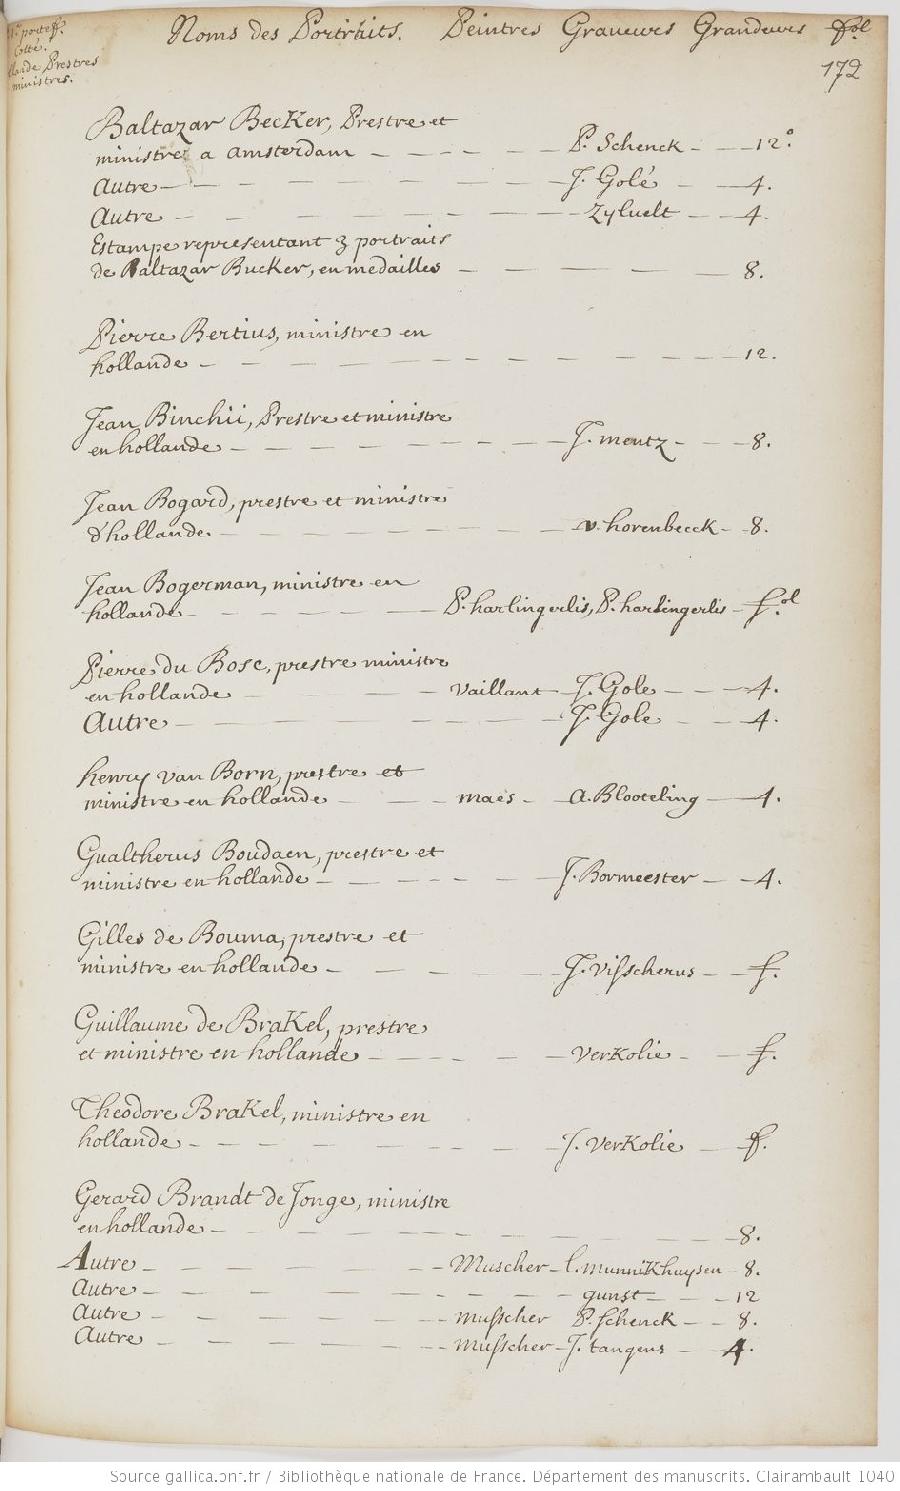 1er portef.
Cotté.
llande Prestres
ministres.
Noms des Portraits. Peintres Graveurs Grandeurs fol
172
Baltazar Becker, Prestre et
ministre a amsterdam P. Schenck 12°
Autre J. Golé 4.
Autre Zylvelt 4
Estampe representant 3 portraits
de Baltazar Bucker, en medailles 8.
Pierre Bertius, ministre en
hollande 12.
Jean Binchii, Prestre et ministre
en hollande J. mentz 8.
Jean Bogard, prestre et ministre
d'hollande. v. horenbeeck 8.
Jean Bogerman, ministre en
hollande P. harlingerlis, P. harlingerlis fol.
Pierre du Bosc, prestre ministre
en hollande Vaillant J. Gole 4.
Autre J. Gole 4.
henry van Born, prestre et
ministre en hollande maes a. Blooteling 4.
Gualtherus Boudaen, prestre et
ministre en hollande J. Bormeester 4.
Gilles de Bouma, prestre et
ministre en hollande J. Visscherus f.
Guillaume de Brakel, prestre
et ministre en hollande Verkolie f.
Theodore Brakel, ministre en
hollande J. Verkolie f.
Gerard Brandt de Jonge, ministre
en hollande 8.
Autre Muscher l. munnikhuysen 8.
Autre gunst 12
Autre musscher P. schenck 8.
Autre musscher J. tangens 4.
Source gallica.bnf.fr / Bibliothèque nationale de France. Département des manuscrits. Clairambault 1040